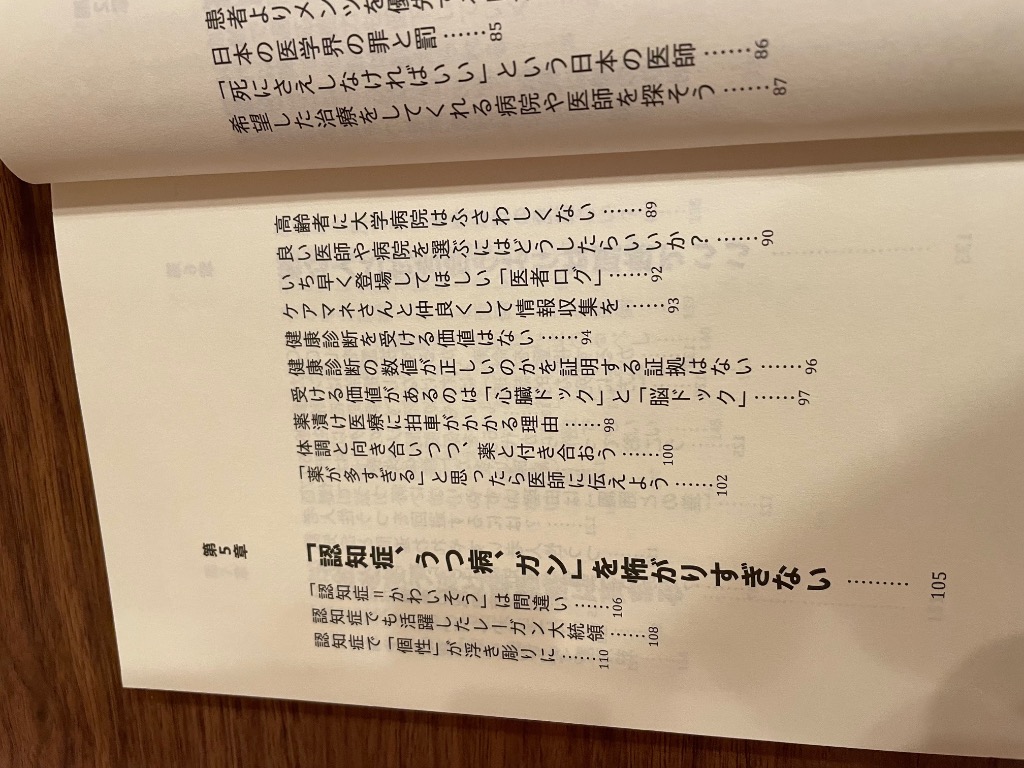 患者よりメンツを優先
日本の医学界の罪と罰……85
「死にさえしなければいい」という日本の医師……86
希望した治療をしてくれる病院や医師を探そう……87
高齢者に大学病院はふさわしくない……89
良い医師や病院を選ぶにはどうしたらいいか？……90
いち早く登場してほしい「医者ログ」……92
ケアマネさんと仲良くして情報収集を……93
健康診断を受ける価値はない……94
健康診断の数値が正しいのかを証明する証拠はない……96
受ける価値があるのは「心臓ドック」と「脳ドック」……97
薬漬け医療に拍車がかかる理由……98
体調と向き合いつつ、薬と付き合おう……100
「薬が多すぎる」と思ったら医師に伝えよう……102
第5章
「認知症、うつ病、ガン」を怖がりすぎない………105
「認知症＝かわいそう」は間違い……106
認知症でも活躍したレーガン大統領……108
認知症で「個性」が浮き彫りに……110